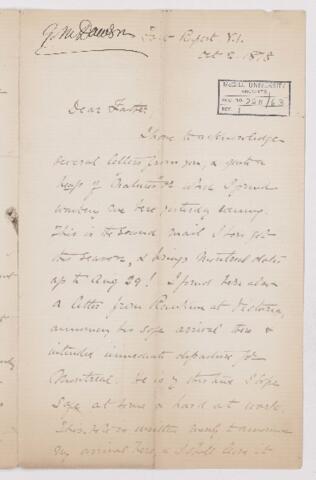 G. M. Dawson
Fort Rupert V.I.
Oct 2. 1878
McGILL UNIVERSITY
ARCHIVES
ACC. NO. 2211/63
REF. 1
Dear Father
I have to acknowledge
several letters from you, & quite a
heap of "Natures" &c which I found
awaiting me here yesterday evening.
This is the second mail I have got
this season, & brings Montreal dates
up to Aug 29! I found here also
a letter from Rankine at Victoria,
announcing his safe arrival there &
intended immediate departure for
Montreal. He is by this time I hope
safe at home & hard at work.
This note is written merely to announce
my arrival here, & I shall leave it